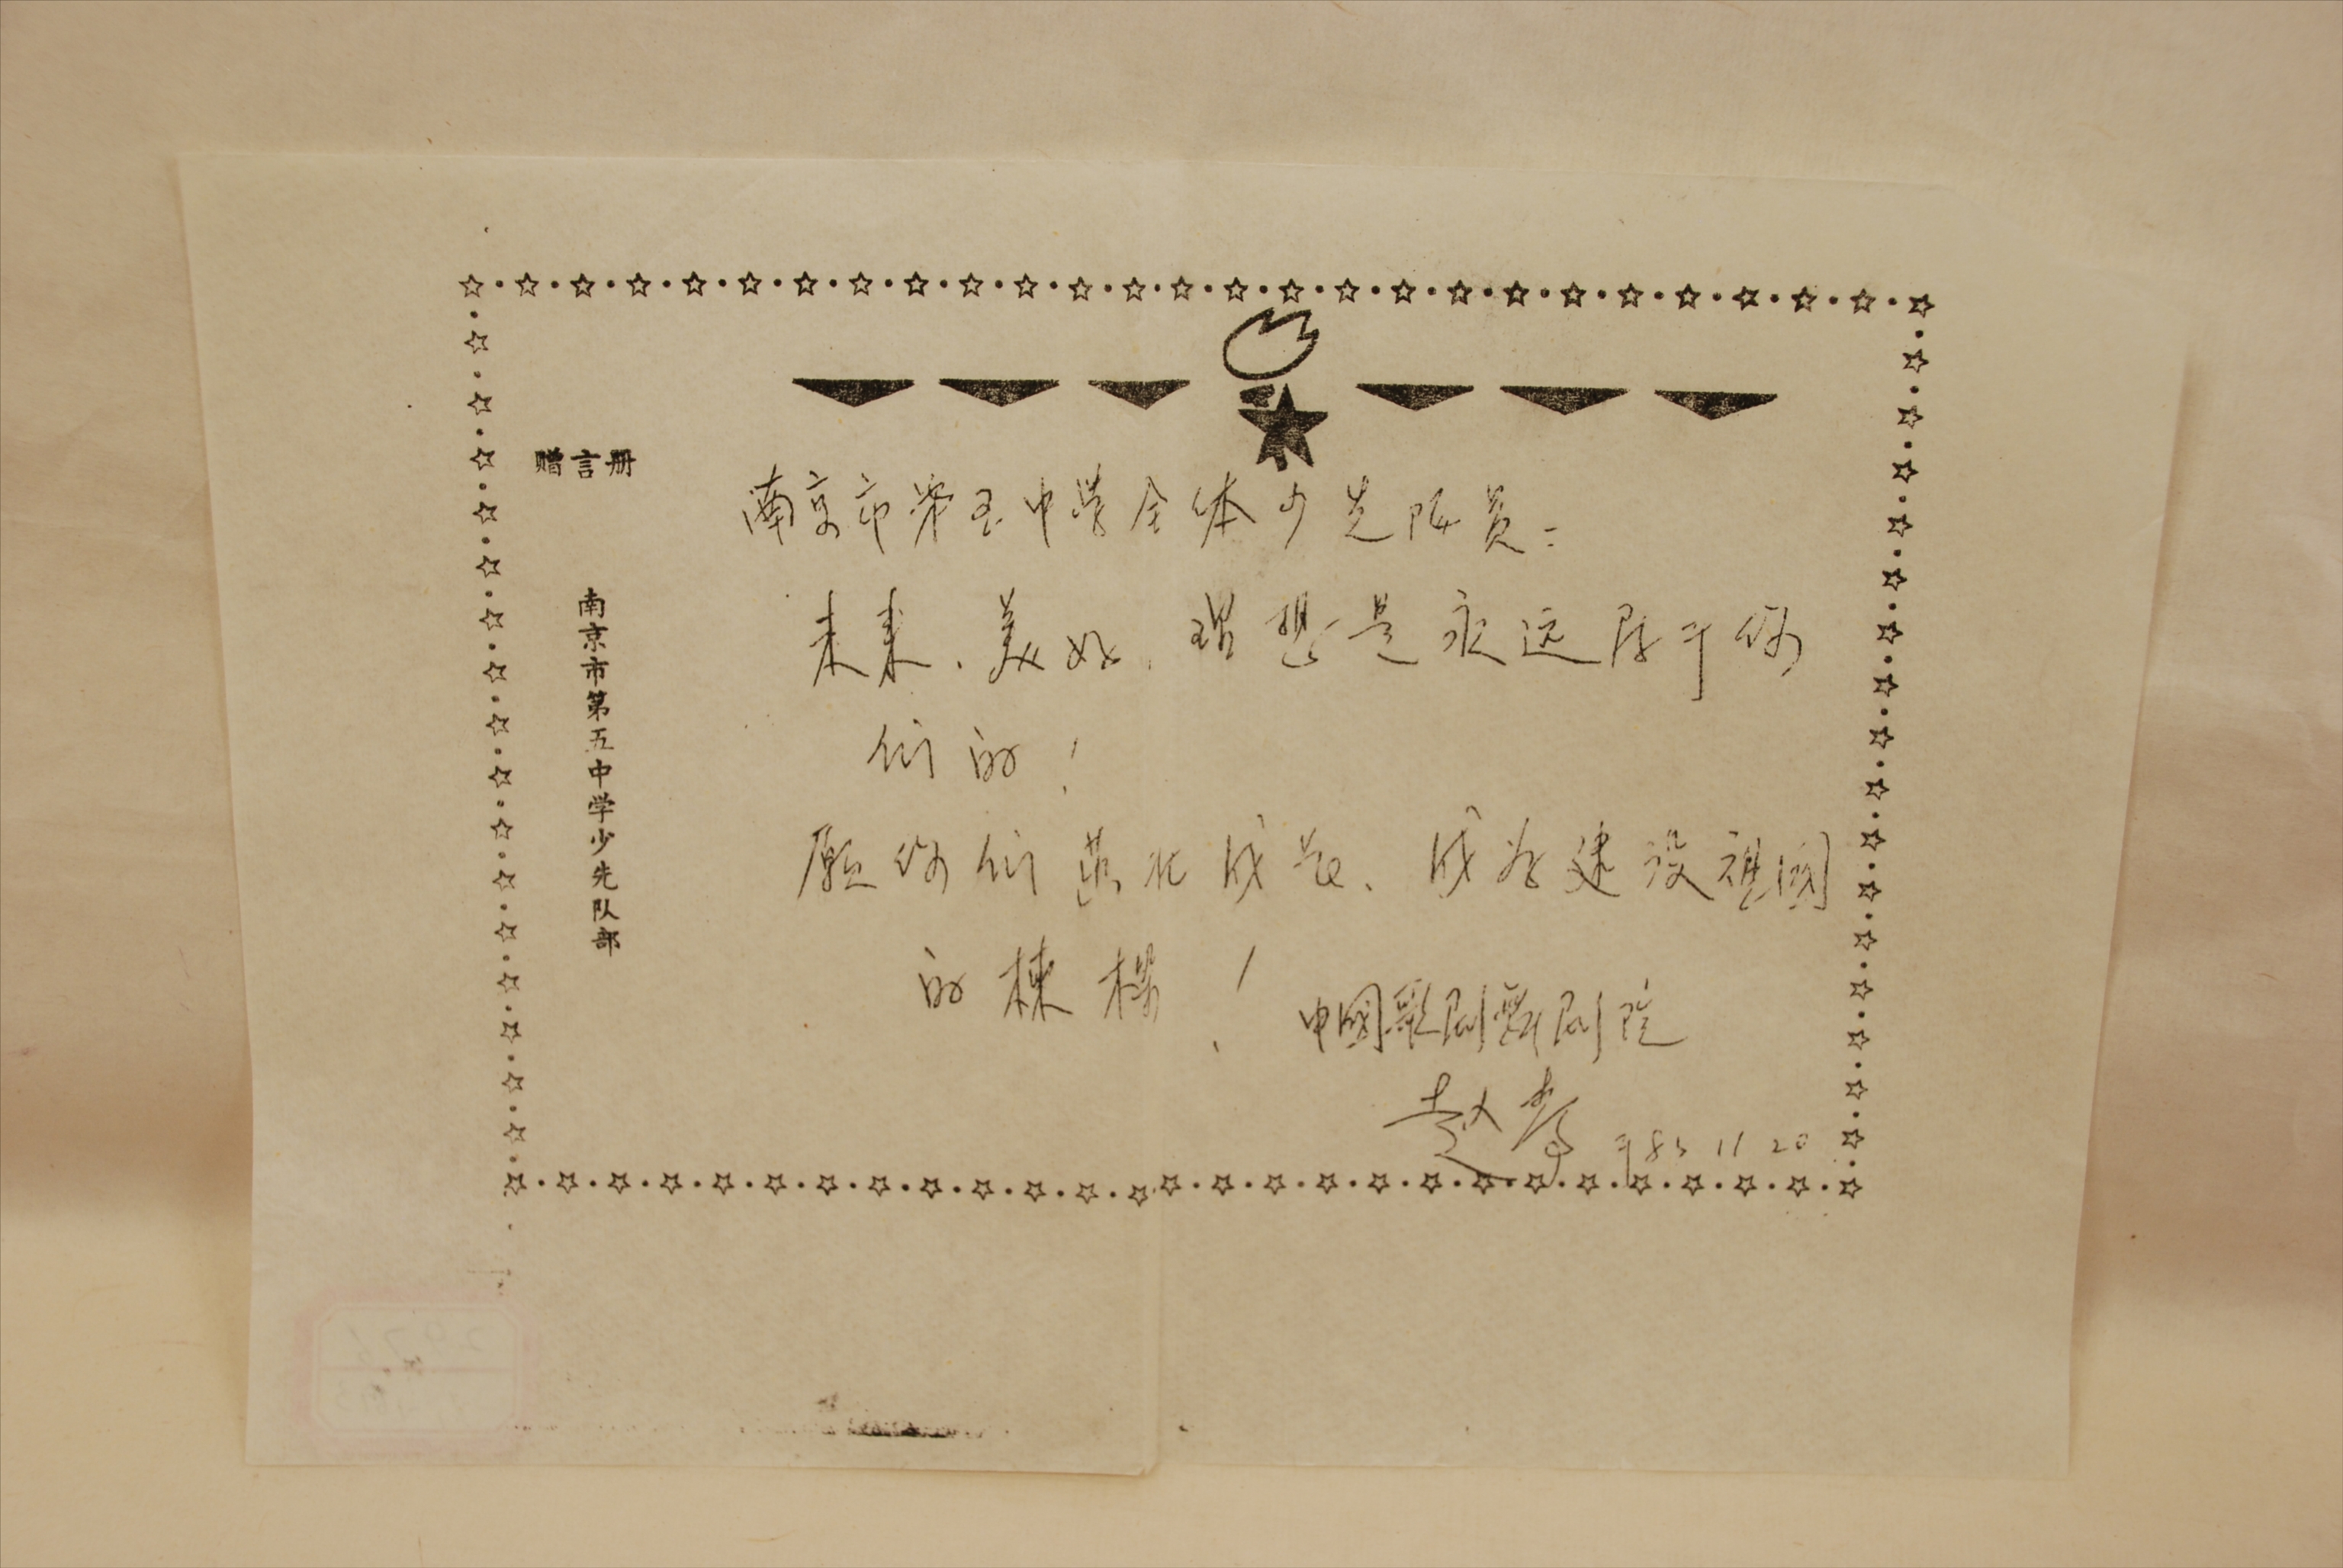 赠言册
南京市第五中学少先队部
南京市第五中学全体少先队员:
未来、美好、理想是永远属于你
们的!
愿你们茁壮成长、成为建设祖國
的棟樑!
中國歌剧舞剧院
赵青 于85 11 20